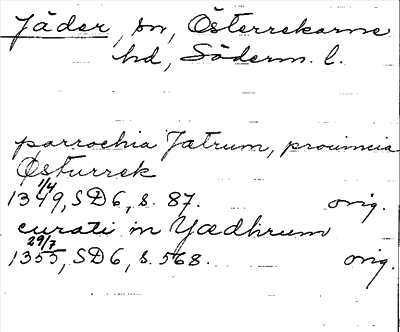 Jäder, sn, Österrekarne
hd, Söderm. l.
parrochia Jatrum, prouincia
Østurrek
1349 1/4, SD 6, s. 87. orig.
curati in Yædhrum
1355 29/7, SD 6, s. 568. orig.